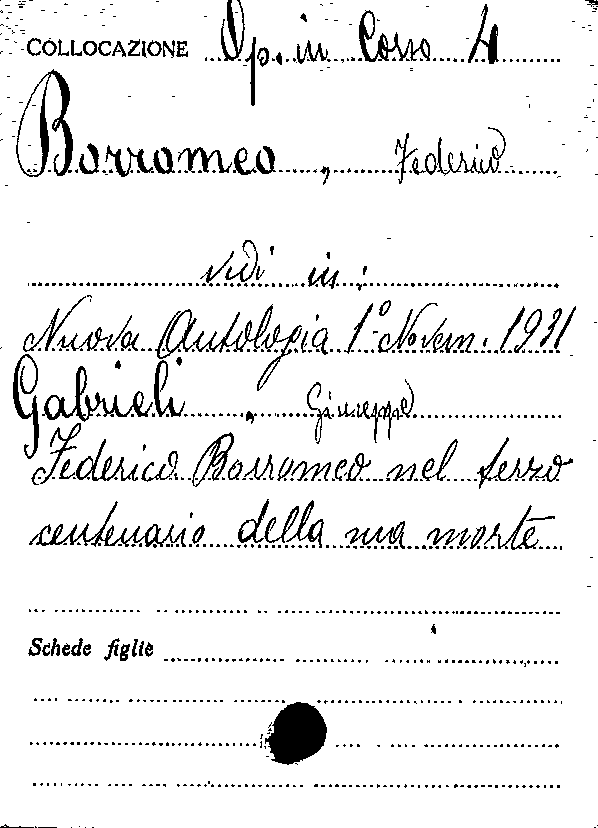 COLLOCAZIONE Op. in Corso 4
Borromeo, Federico
vedi in:
Nuova Antologia 1º Novem. 1931
Gabrieli, Giuseppe
Federico Borromeo nel terzo
centenario della sua morte
Schede figlie